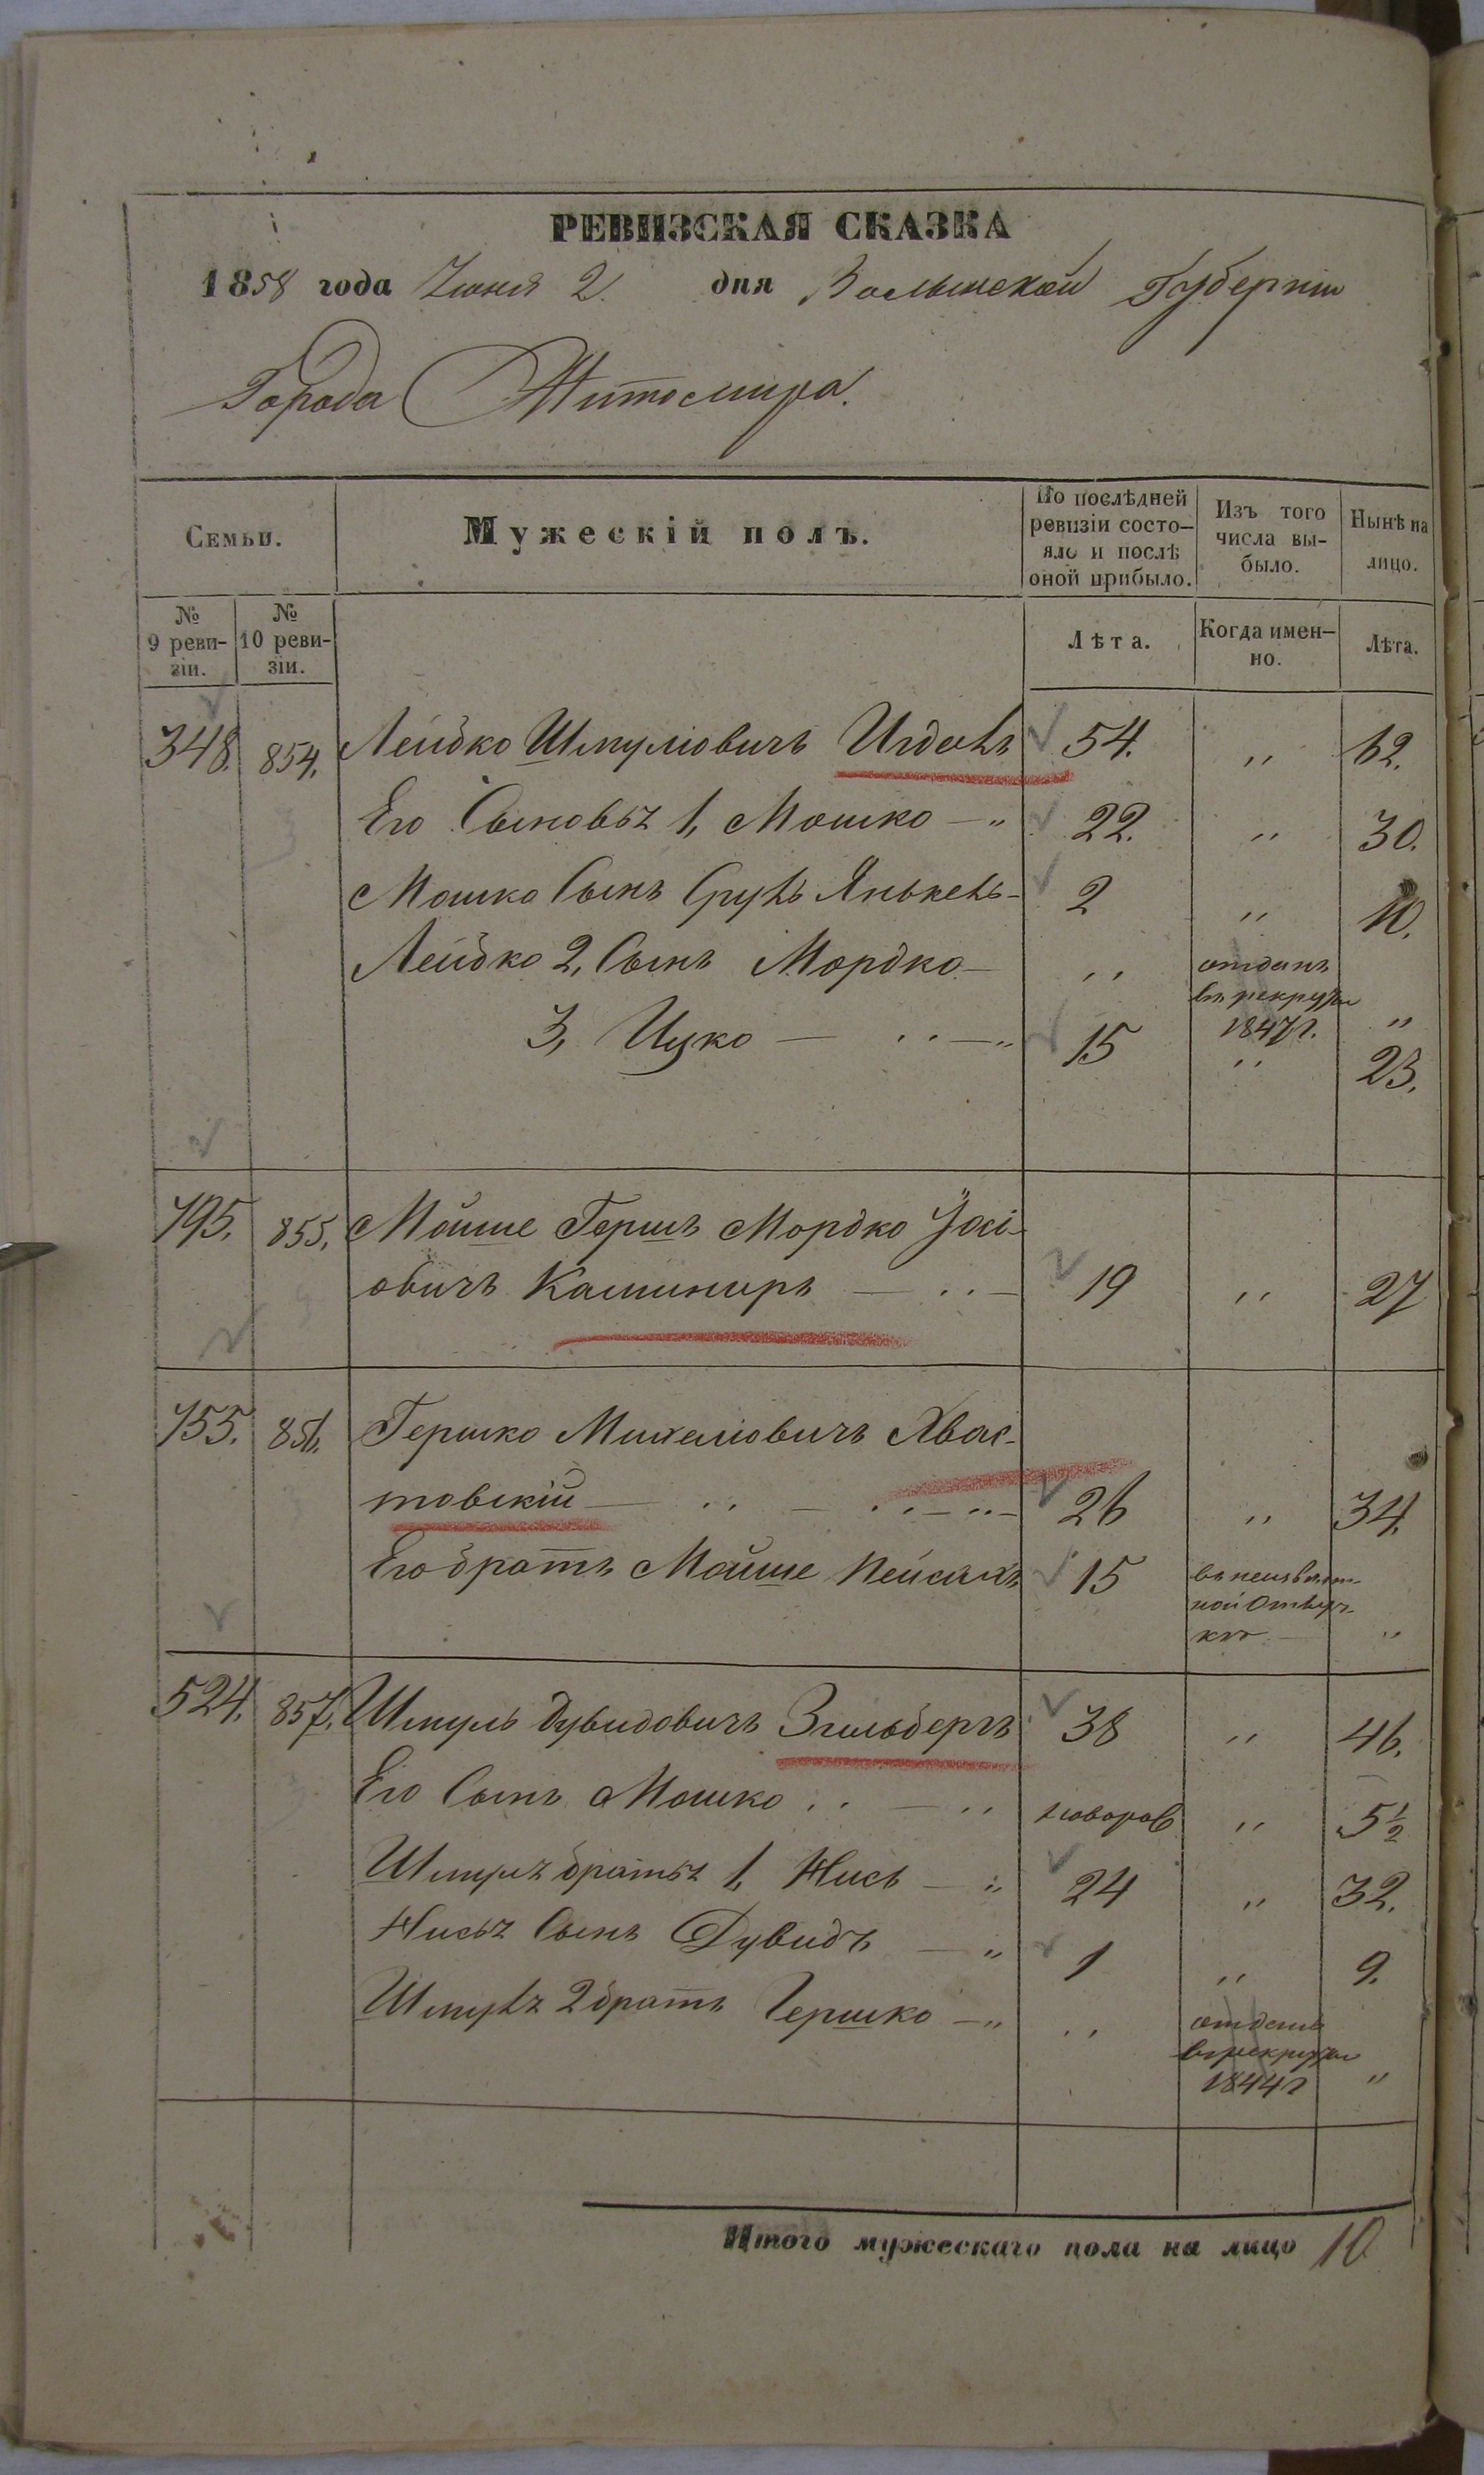 РЕВИЗСКАЯ СКАЗКА
1858 года Іюня 2. дня Волынской Губерніи
Города Житомира.
Семьи. Мужескій полъ. По послѣдней ревизіи состо- Изъ того Нынѣ на
яло и послѣ числа вы- лицо.
оной прибыло. было.
№ №
9 реви- 10 реви- Лѣта. Когда имен- Лѣта.
зіи. зіи. но.
348. 854. Лейбко Шмуліовичъ 54. „ 62.
Его Сыновья 1, Мошко — „ 22. „ 30.
Мошка Сынъ Сруль Янькель 2 „ 10.
Лейбко 2, Сынъ Мордко — „ отданъ
въ рекруты
1847 г. „
3, Ицко — „ — „ 15 „ 23.
795. 855. Мойше Гершъ Мордко Іосі-
овичъ Каминиръ — „ — 19 „ 27
755. 856. Гершко Михеліовичъ Хвас-
товскій — „ — „ — „ — 26 „ 34.
Его братъ Мойше Пейсахъ 15 въ неизвѣст-
ной отлуч-
кѣ — „
524. 857. Шмуль Дувидовичъ Зильбергъ 38 „ 46.
Его Сынъ Мошко „ — „ новорож „ 5½
Шмуля братья 1, Нись — „ 24 „ 32.
Нися Сынъ Дувидъ — „ 1 „ 9.
Шмуля 2 братъ Гершко — „ „ отданъ
въ рекруты
1844 г „
Итого мужескаго пола на лицо 10